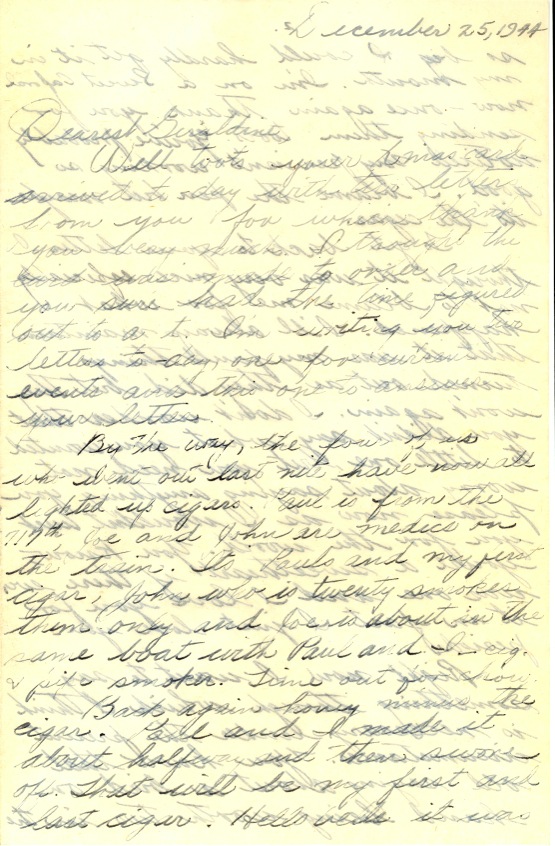 December 25, 1944
Dearest Geraldine,
Well toots your Xmas card
arrived to day with the letter
from you for which thank
you very much. I thought the
card was made to order and
you sure had the time figured
out to a t. Im writing you two
letters to-day, one for current
events and this one to answer
your letter.
By the way, the four of us
who went out last nite have now all
lighted up cigars. Paul is from the
717th, Joe and John are medics on
the train. Its Pauls and my first
cigar, John who is twenty smokes
them only and Joe is about in the
same boat with Paul and I - cig.
& pipe smoker. Time out for chow.
Back again honey minus the
cigar. Paul and I made it
about halfway and then swore
off. That will be my first and
last cigar. it was